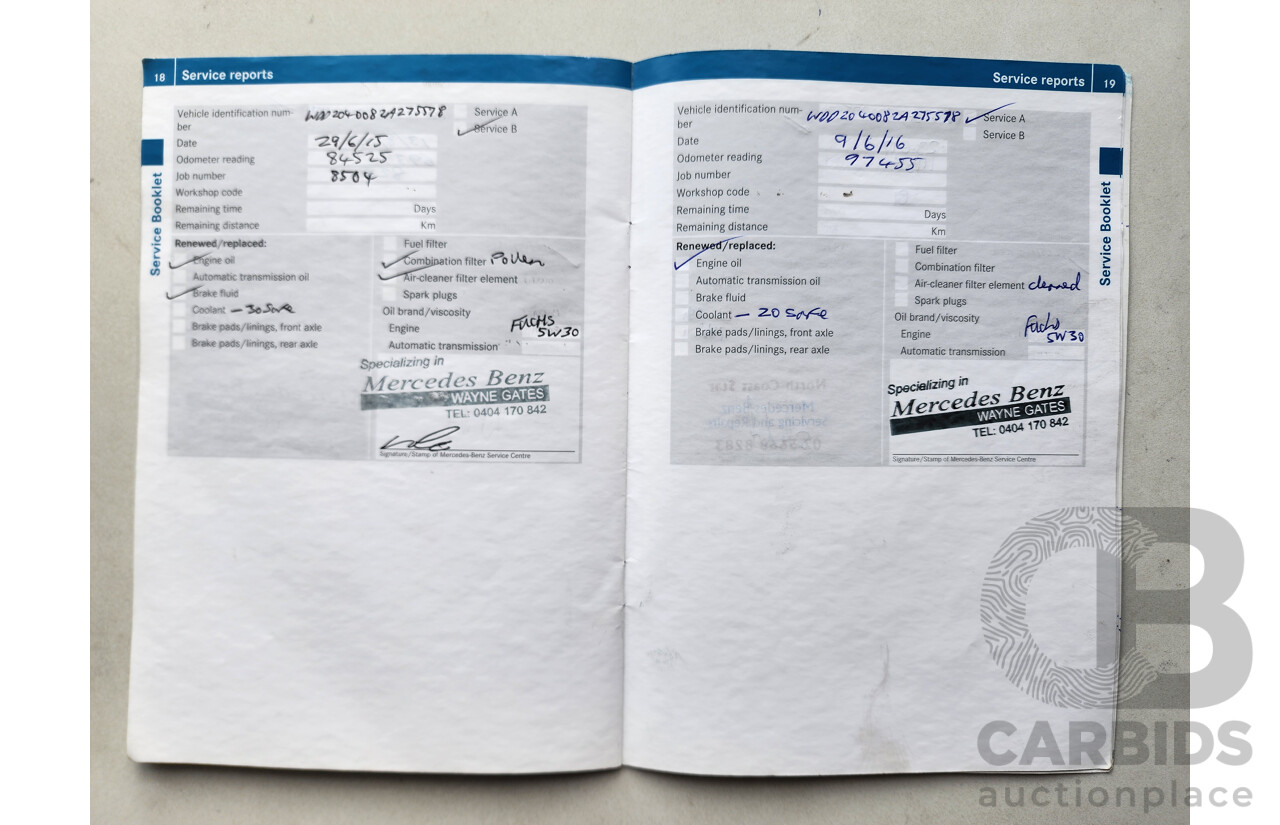 18 Service reports
Vehicle identification num-
ber
WDD2040082A275578
Service A
Service B
Date 29/6/15
Odometer reading 84525
Job number 8504
Workshop code
Remaining time Days
Remaining distance Km
Renewed/replaced:
Engine oil
Automatic transmission oil
Brake fluid
Coolant – 30 Safe
Brake pads/linings, front axle
Brake pads/linings, rear axle
Fuel filter
Combination filter Pollen
Air-cleaner filter element
Spark plugs
Oil brand/viscosity
Engine FUCHS
5W30
Automatic transmission
Specializing in
Mercedes Benz
WAYNE GATES
TEL: 0404 170 842
Signature/Stamp of Mercedes-Benz Service Centre
Service Booklet
Service reports 19
Vehicle identification num-
ber
WDD2040082A275578
Service A
Service B
Date 9/6/16
Odometer reading 97455
Job number
Workshop code
Remaining time Days
Remaining distance Km
Renewed/replaced:
Engine oil
Automatic transmission oil
Brake fluid
Coolant – 20 Safe
Brake pads/linings, front axle
Brake pads/linings, rear axle
Fuel filter
Combination filter
Air-cleaner filter element cleaned
Spark plugs
Oil brand/viscosity
Engine Fuchs
5W30
Automatic transmission
Specializing in
Mercedes Benz
WAYNE GATES
TEL: 0404 170 842
Signature/Stamp of Mercedes-Benz Service Centre
Service Booklet
CARBIDS
auctionplace